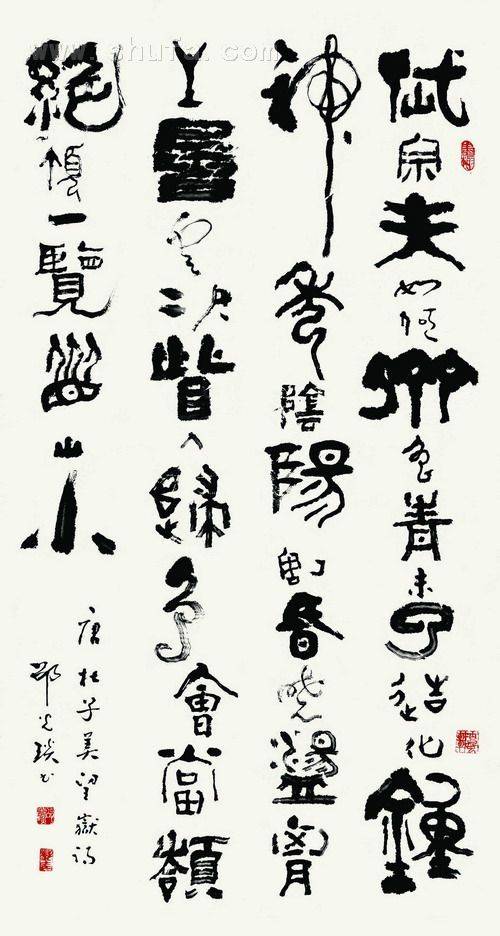 www.shufa.com
岱宗夫如何齊魯青未了造化鍾
神秀陰陽割昏曉盪胷
生層雲決眥入歸鳥會當
絕頂一覽眾山小
唐杜子美望嶽詩
書